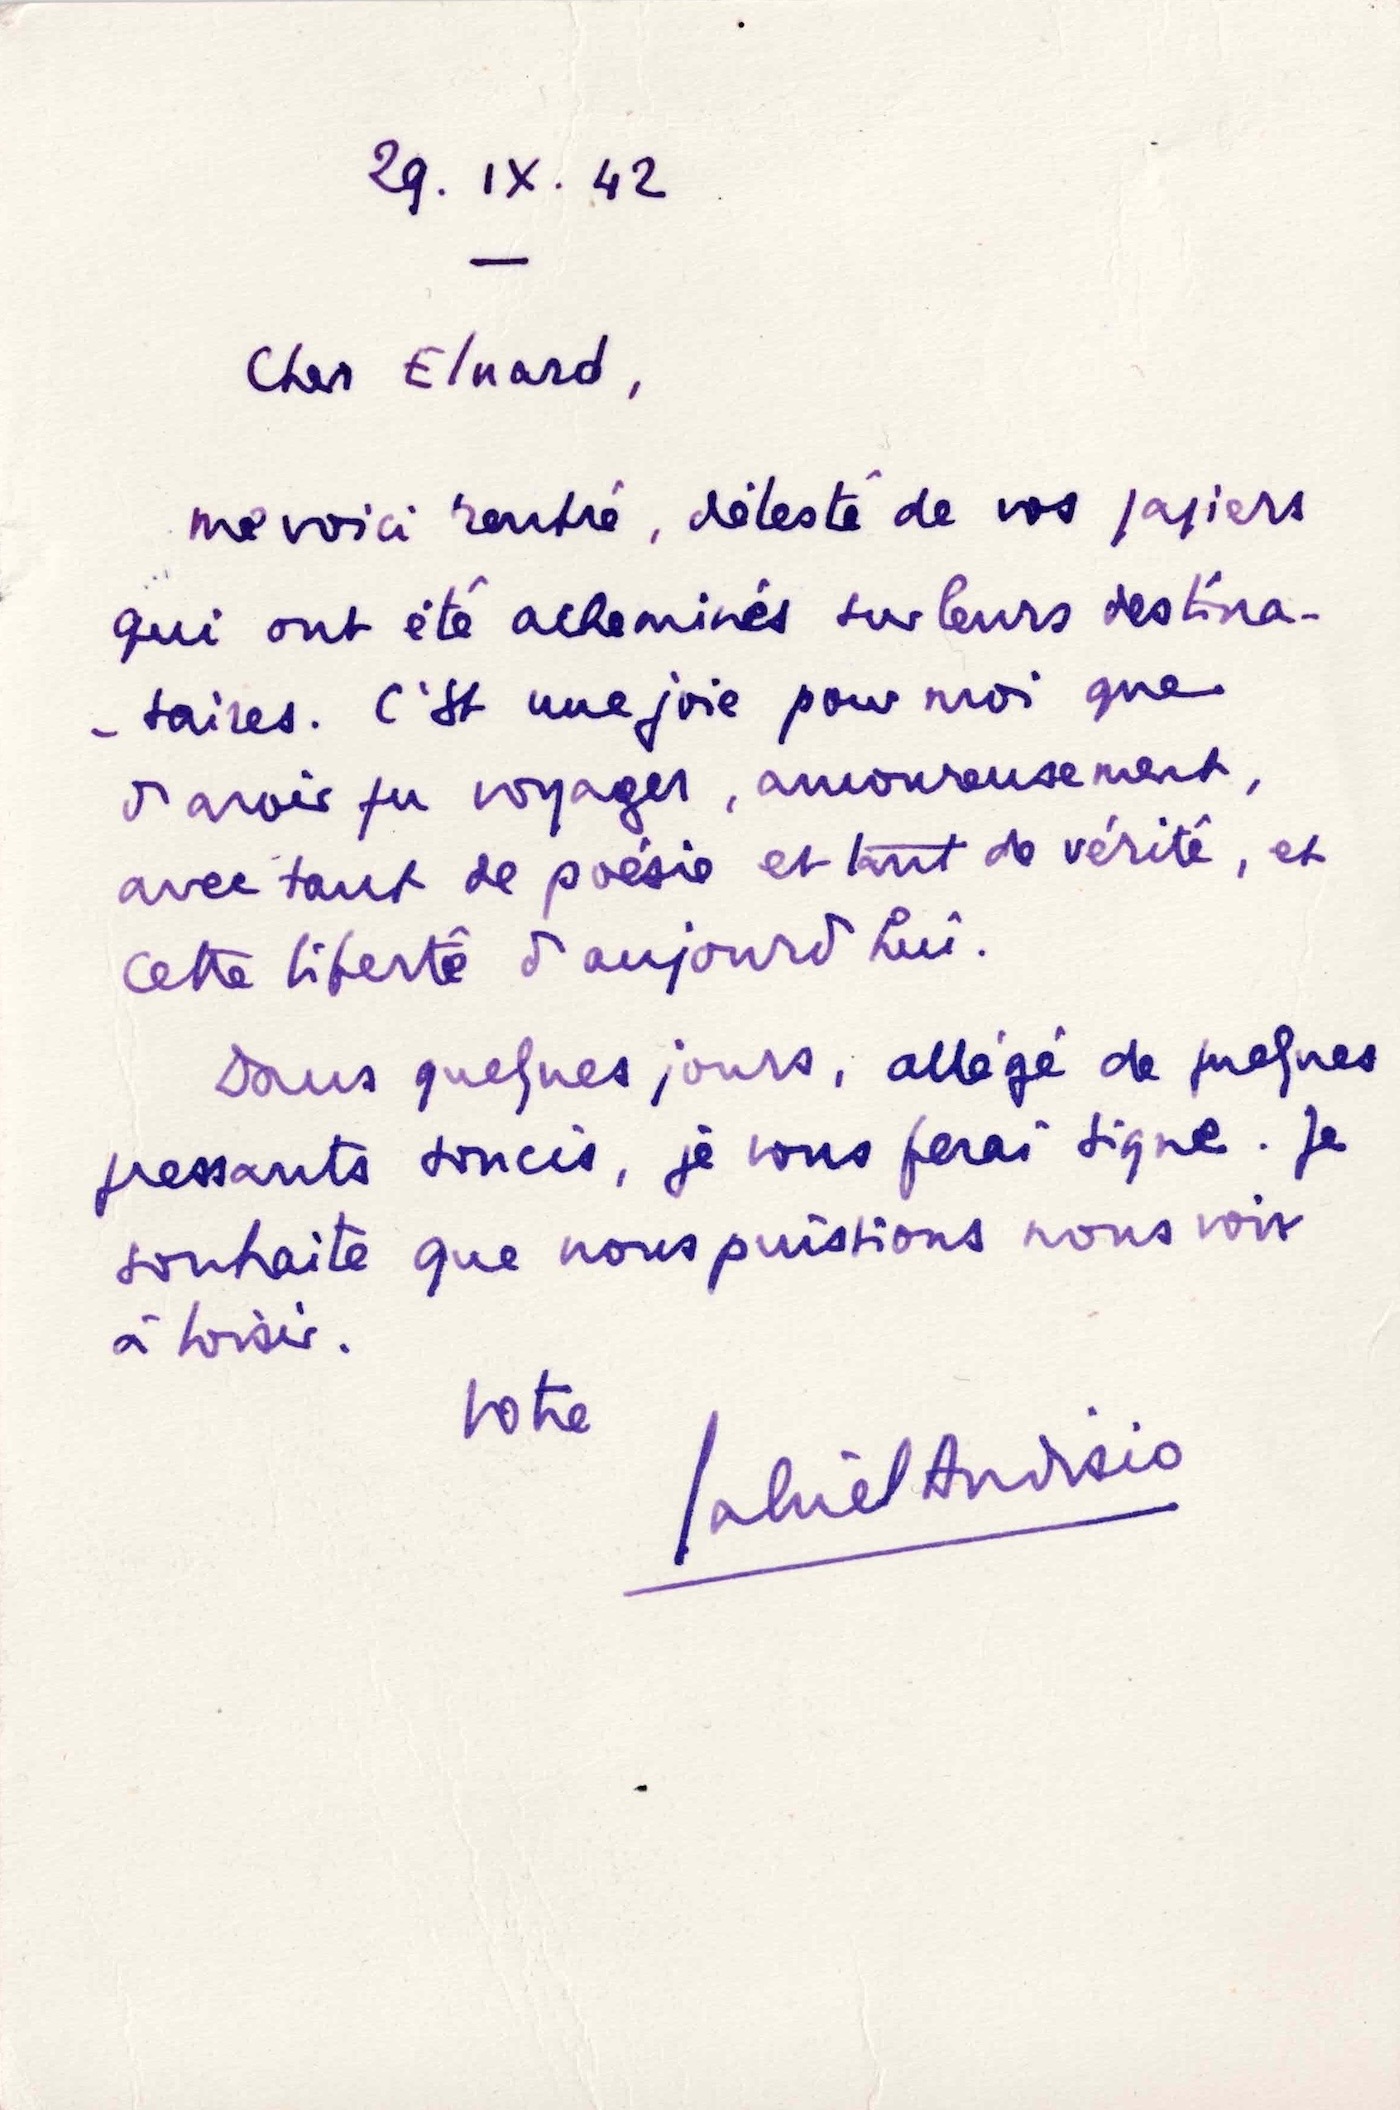 29. IX. 42
—
Cher Eluard,
me voici rentré, délesté de vos papiers
qui ont été acheminés sur leurs destina-
- taires. C'est une joie pour moi que
d'avoir pu voyager, amoureusement,
avec tant de poésie et tant de vérité, et
cette liberté d'aujourd'hui.
Dans quelques jours, allégé de quelques
pressants soucis, je vous ferai signe. Je
souhaite que nous puissions nous voir
à loisir.
Votre
Gabriel Audisio